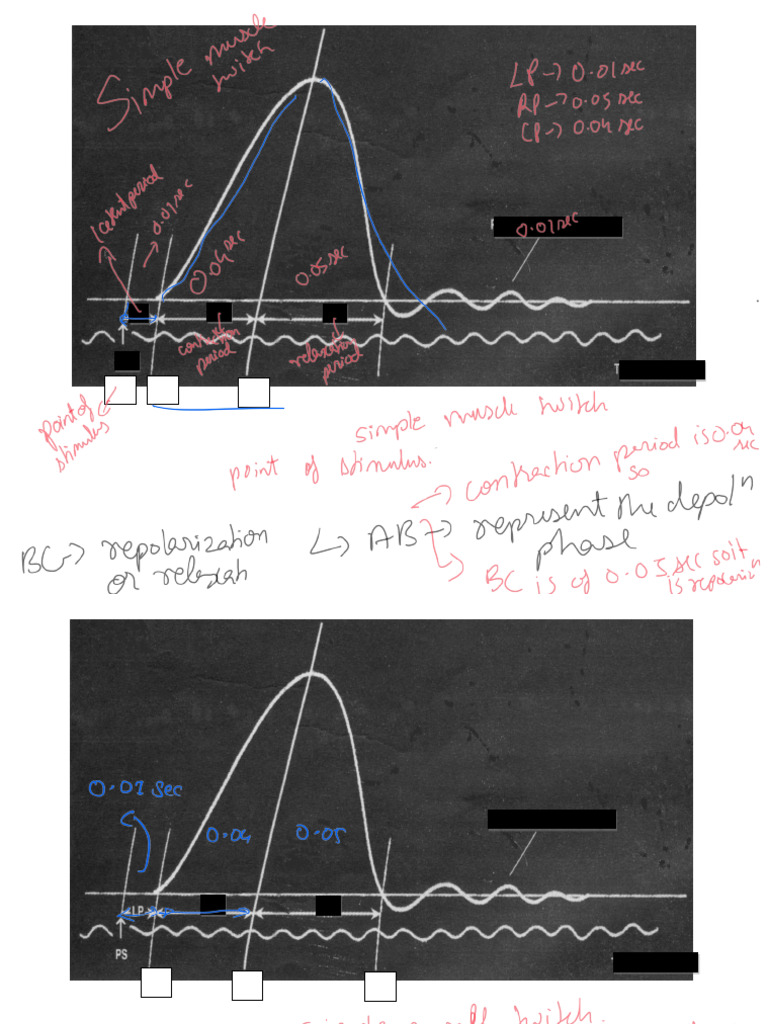 Simple muscle
twitch
LP → 0.01 sec
RP → 0.05 sec
CP → 0.04 sec
latent period
→ 0.01 sec
0.04 sec
0.05 sec
0.01 sec
contraction
period
relaxation
period
T
point of
stimulus
simple muscle twitch
point of stimulus.
→ contraction period is 0.04
sec
so
↳ AB → represent the depolⁿ
phase
BC → repolarization
or relaxatn
↳ BC is of 0.05 sec so it
is repolarizⁿ
0.01 sec
0.04
0.05
LP
PS